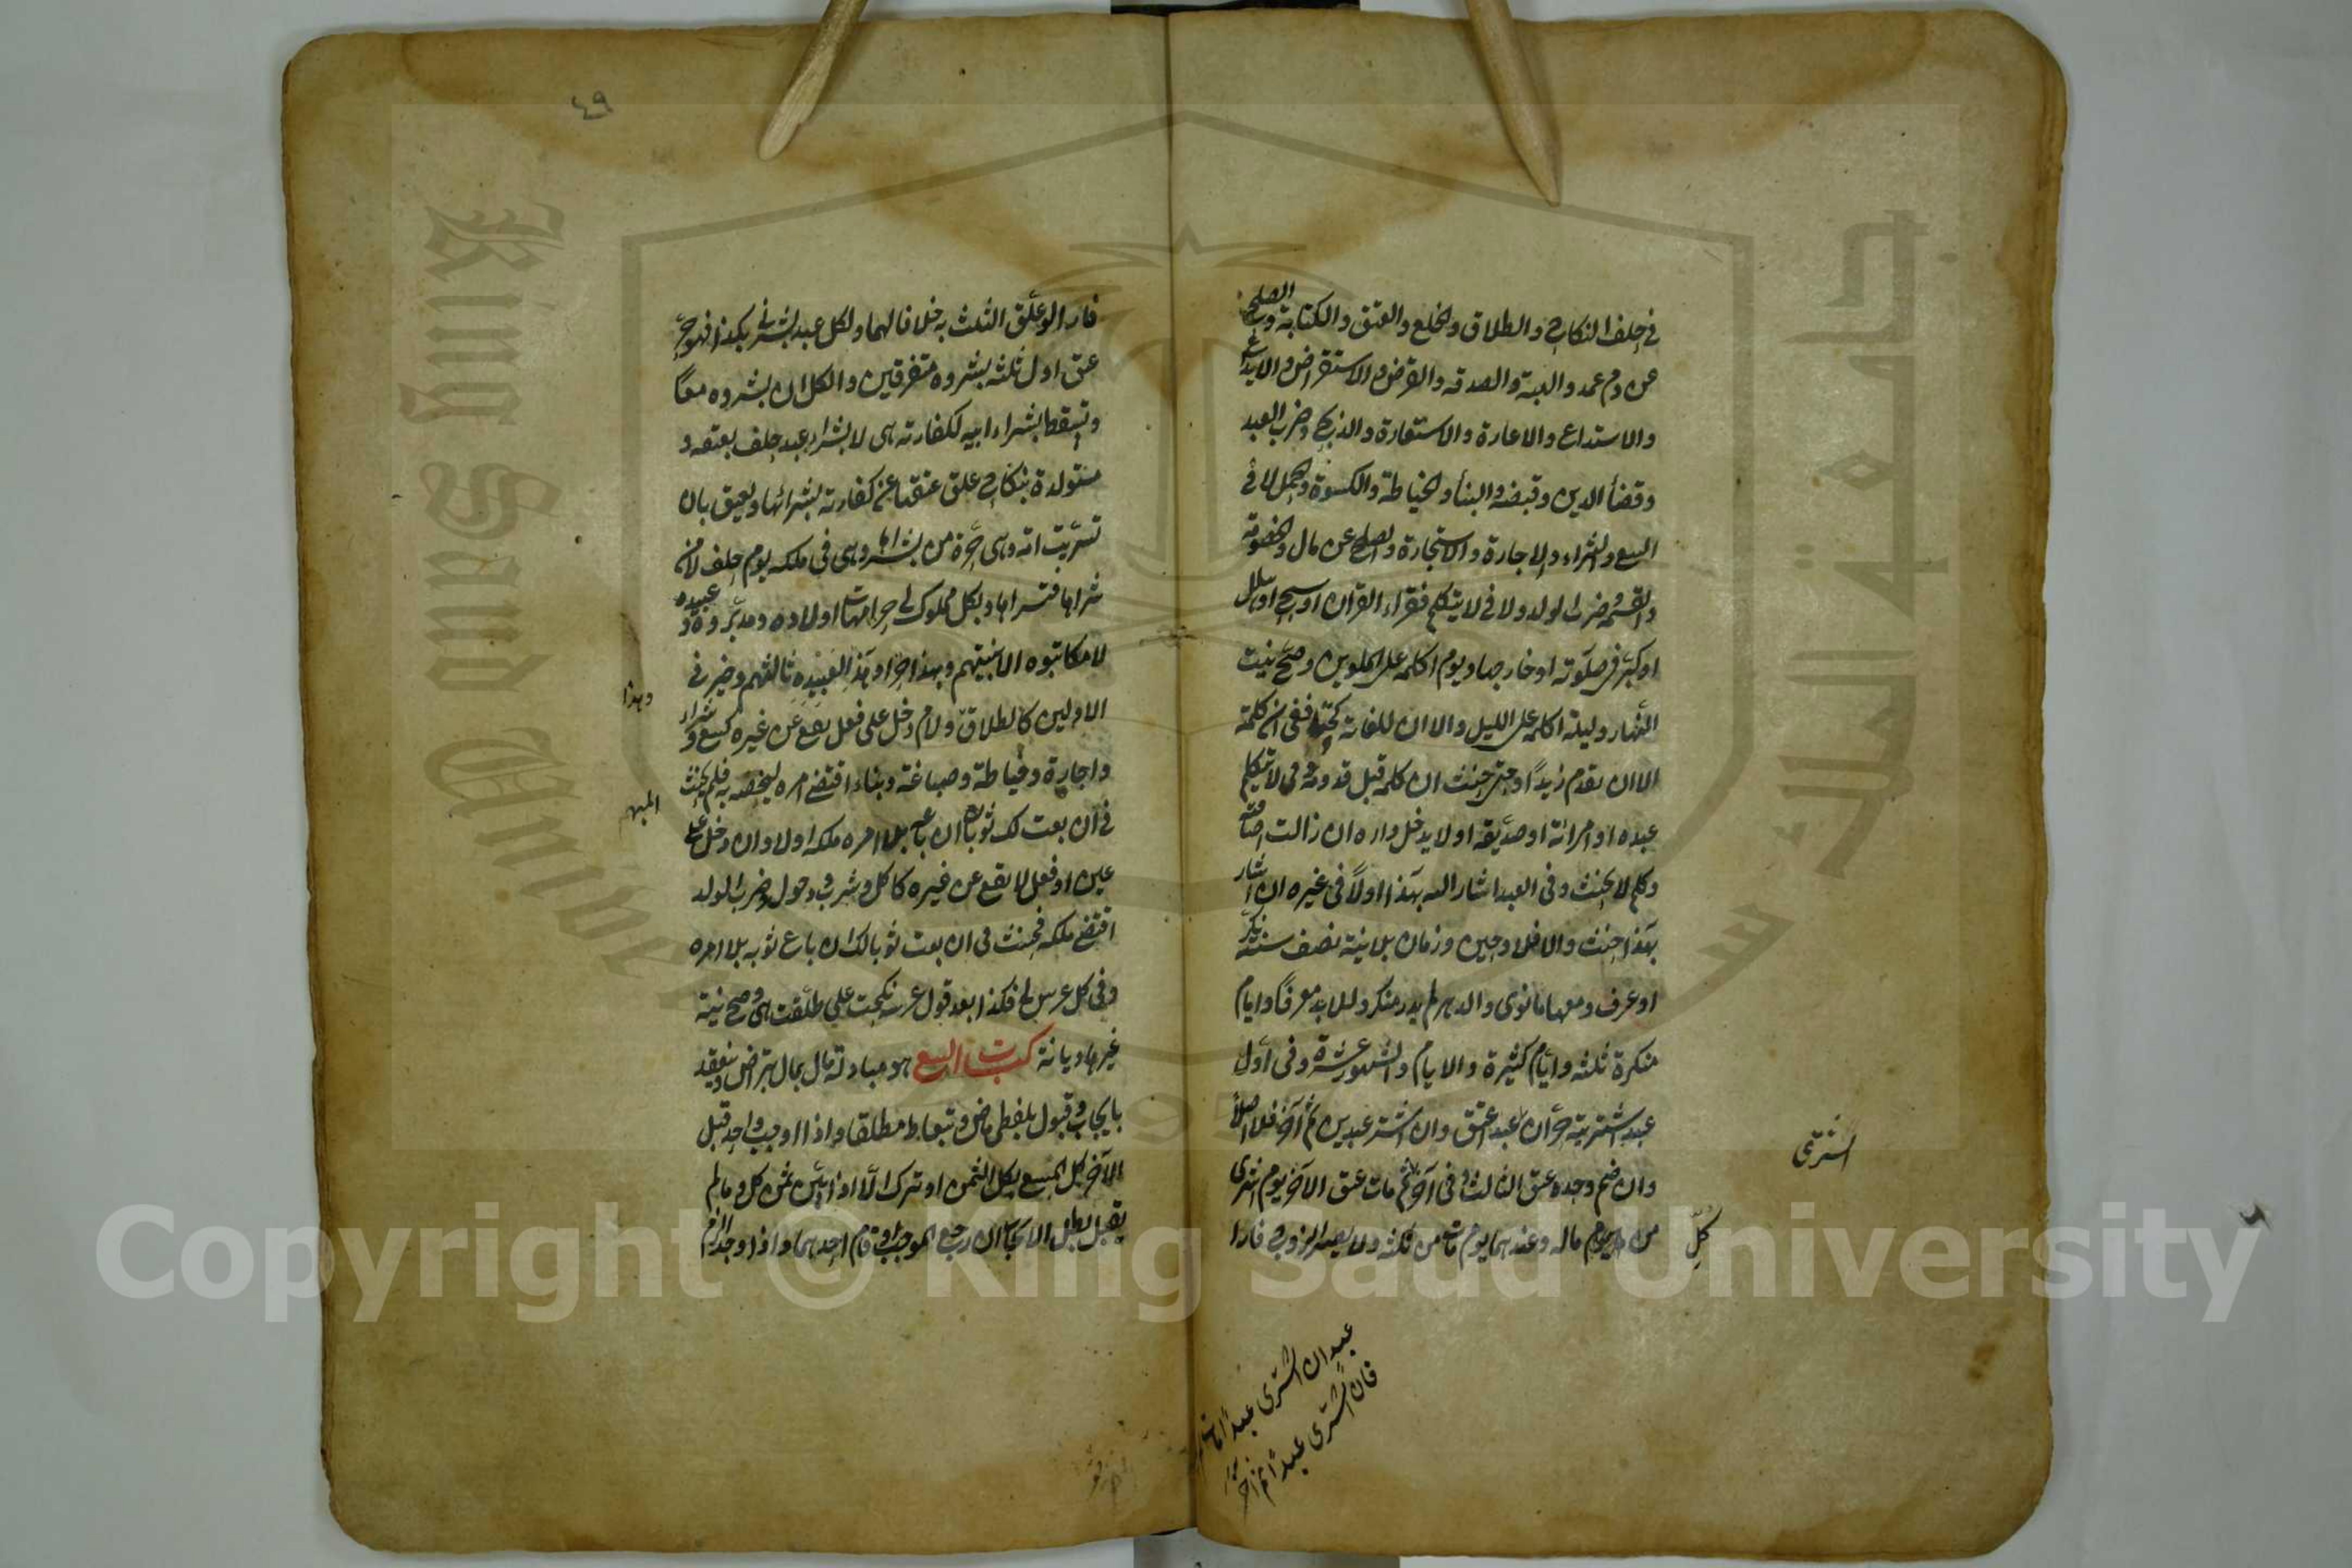 في حلف النكاح والطلاق والخلع والعتق والكتابة والصلح
عن دم عمد والهبة والصدقه والقرض والاستقراض والايداع
والاستداع والاعارة والاستعارة والذبح وضرب العبد
وقضأ الدين وقبضه والبنأ والخياطة والكسوة والحمل لا في
البيع والشراء والاجارة والاستجارة والصلح عن مال والخصومة
والقسمة وضرب الولد ولا في لا يتكلم فقراء القران او سبح او هلل
او كبر في صلوته او خارجها ويوم اكلمه على الملوين وصح نيت
النهار وليلة اكلمه على الليل والا ان للغاية كحتى ففي ان كلمته
الا ان يقدم زيد او حتى حنث ان كلمه قبل قدومه وفي لا يتكلم
عبده او امراته او صديقه او لا يدخل داره ان زالت اضافته
وكلم لا يحنث وفي العبد اشار اليه بهذا اولا في غيره ان اشار
بهذا حنث والا فلا وحين وزمان بلا نية نصف سنة نكر
او عرف ومعها ما نوى والدهر لم يدر منكر وللابد معرفا وايام
منكرة ثلثه وايام كثيرة والايام والشهور عشرة وفي اول
عبد اشتريته حر ان عبد اعتق وان اشتر عبدين ثم آخر فلا اصلا
وان ضم وحده عتق الثالث وفي آخر ثم مات عتق الآخر يوم اشرى
من كل ماله وعندهما يوم مات من ثلثه ولا يصير الزوج فارا
اشترى
كل
عبد ان اشترى عبدا
فان اشترى عبدا ثم آخر
٤٩
فارا لو علق الثلث به خلافا لهما ولكل عبد بشرني بكذا فهو حر
عتق اول ثلثه بشروه متفرقين والكل ان بشروه معا
وتسقط بشراء ابيه لكفارته هي لا بشراء عبد حلف بعتقه و
مستولدة بنكاح علق عتقها عن كفارته بشرائها ويعتق بان
تسريت امة وهي حرة من تسراها وهي في ملكه يوم حلف لا من
شراها فتسراها وبكل مملوك لي حر امهات اولاده ومدبروه وعبيده
لا مكاتبوه الا بنيتهم وبهذا حر او هذا لعبيده ثالثهم وخير في
الاولين كالطلاق ولام دخل على فعل يقع عن غيره كبيع وشراء
واجارة وخياطة وصباغة وبناء اقتضى امره ليخصه به فلم يحنث
في ان بعت لك ثوبا ان باعه بلا امره ملكه اولا وان دخل على
عين او فعل لا يقع عن غيره كاكل وشرب ودخول وضرب الولد
اقتضى ملكه فحنث في ان بعت ثوبا لك ان باع ثوبه بلا امره
وفي كل عرس لي فكذا بعد قول عرسه نكحت علي طلقت هي وصح نية
غيرها ديانة كتاب البيع هو مبادلة مال بمال بتراض وينعقد
بايجاب وقبول بلفظي ماض وتعاط مطلقا واذا اوجب واحد قبل
الآخر كل المبيع بكل الثمن او ترك الا اذا بين ثمن كل وما لم
يقبل بطل الايجاب ان رجع الموجب او قام احدهما واذا وجد الزم
وهذا
المبهم
King Saud University
جامعة الملك سعود
Copyright © King Saud University